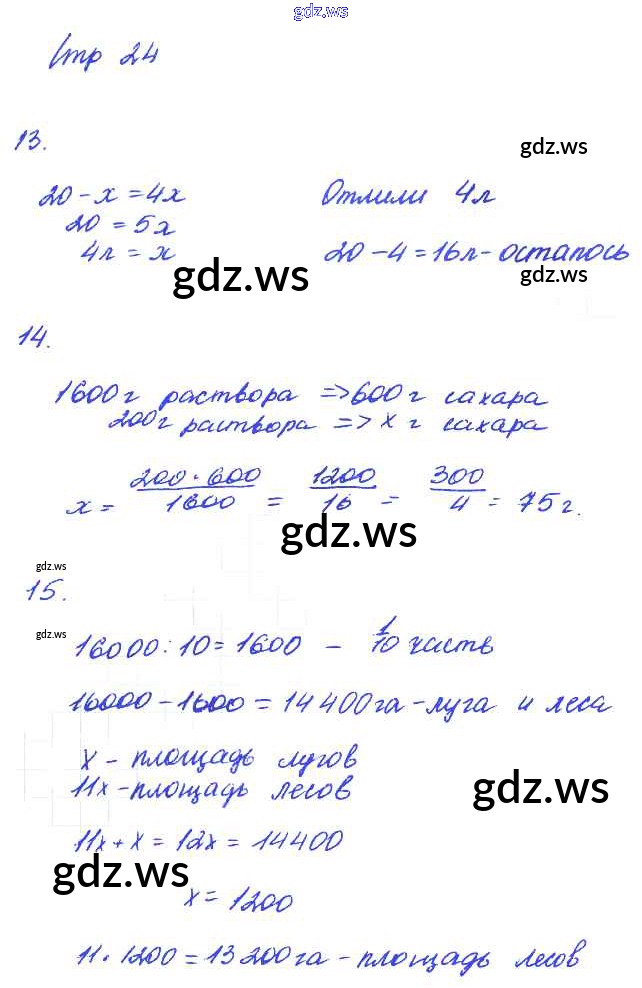 gdz.ws
Стр 24
13.
gdz.ws
20 - x = 4x
Отлили 4л
20 = 5x
4л = x
20 - 4 = 16л - осталось
gdz.ws
gdz.ws
14.
1600 г раствора => 600 г сахара
200г раствора => x г сахара
x = 200·600/1600 = 1200/16 = 300/4 = 75 г.
gdz.ws
gdz.ws
15.
gdz.ws
16000 : 10 = 1600 - 1/10 часть
16000 - 1600 = 14 400 га - луга и леса
x - площадь лугов
11x - площадь лесов
gdz.ws
11x + x = 12x = 14400
gdz.ws
x = 1200
11 · 1200 = 13 200 га - площадь лесов